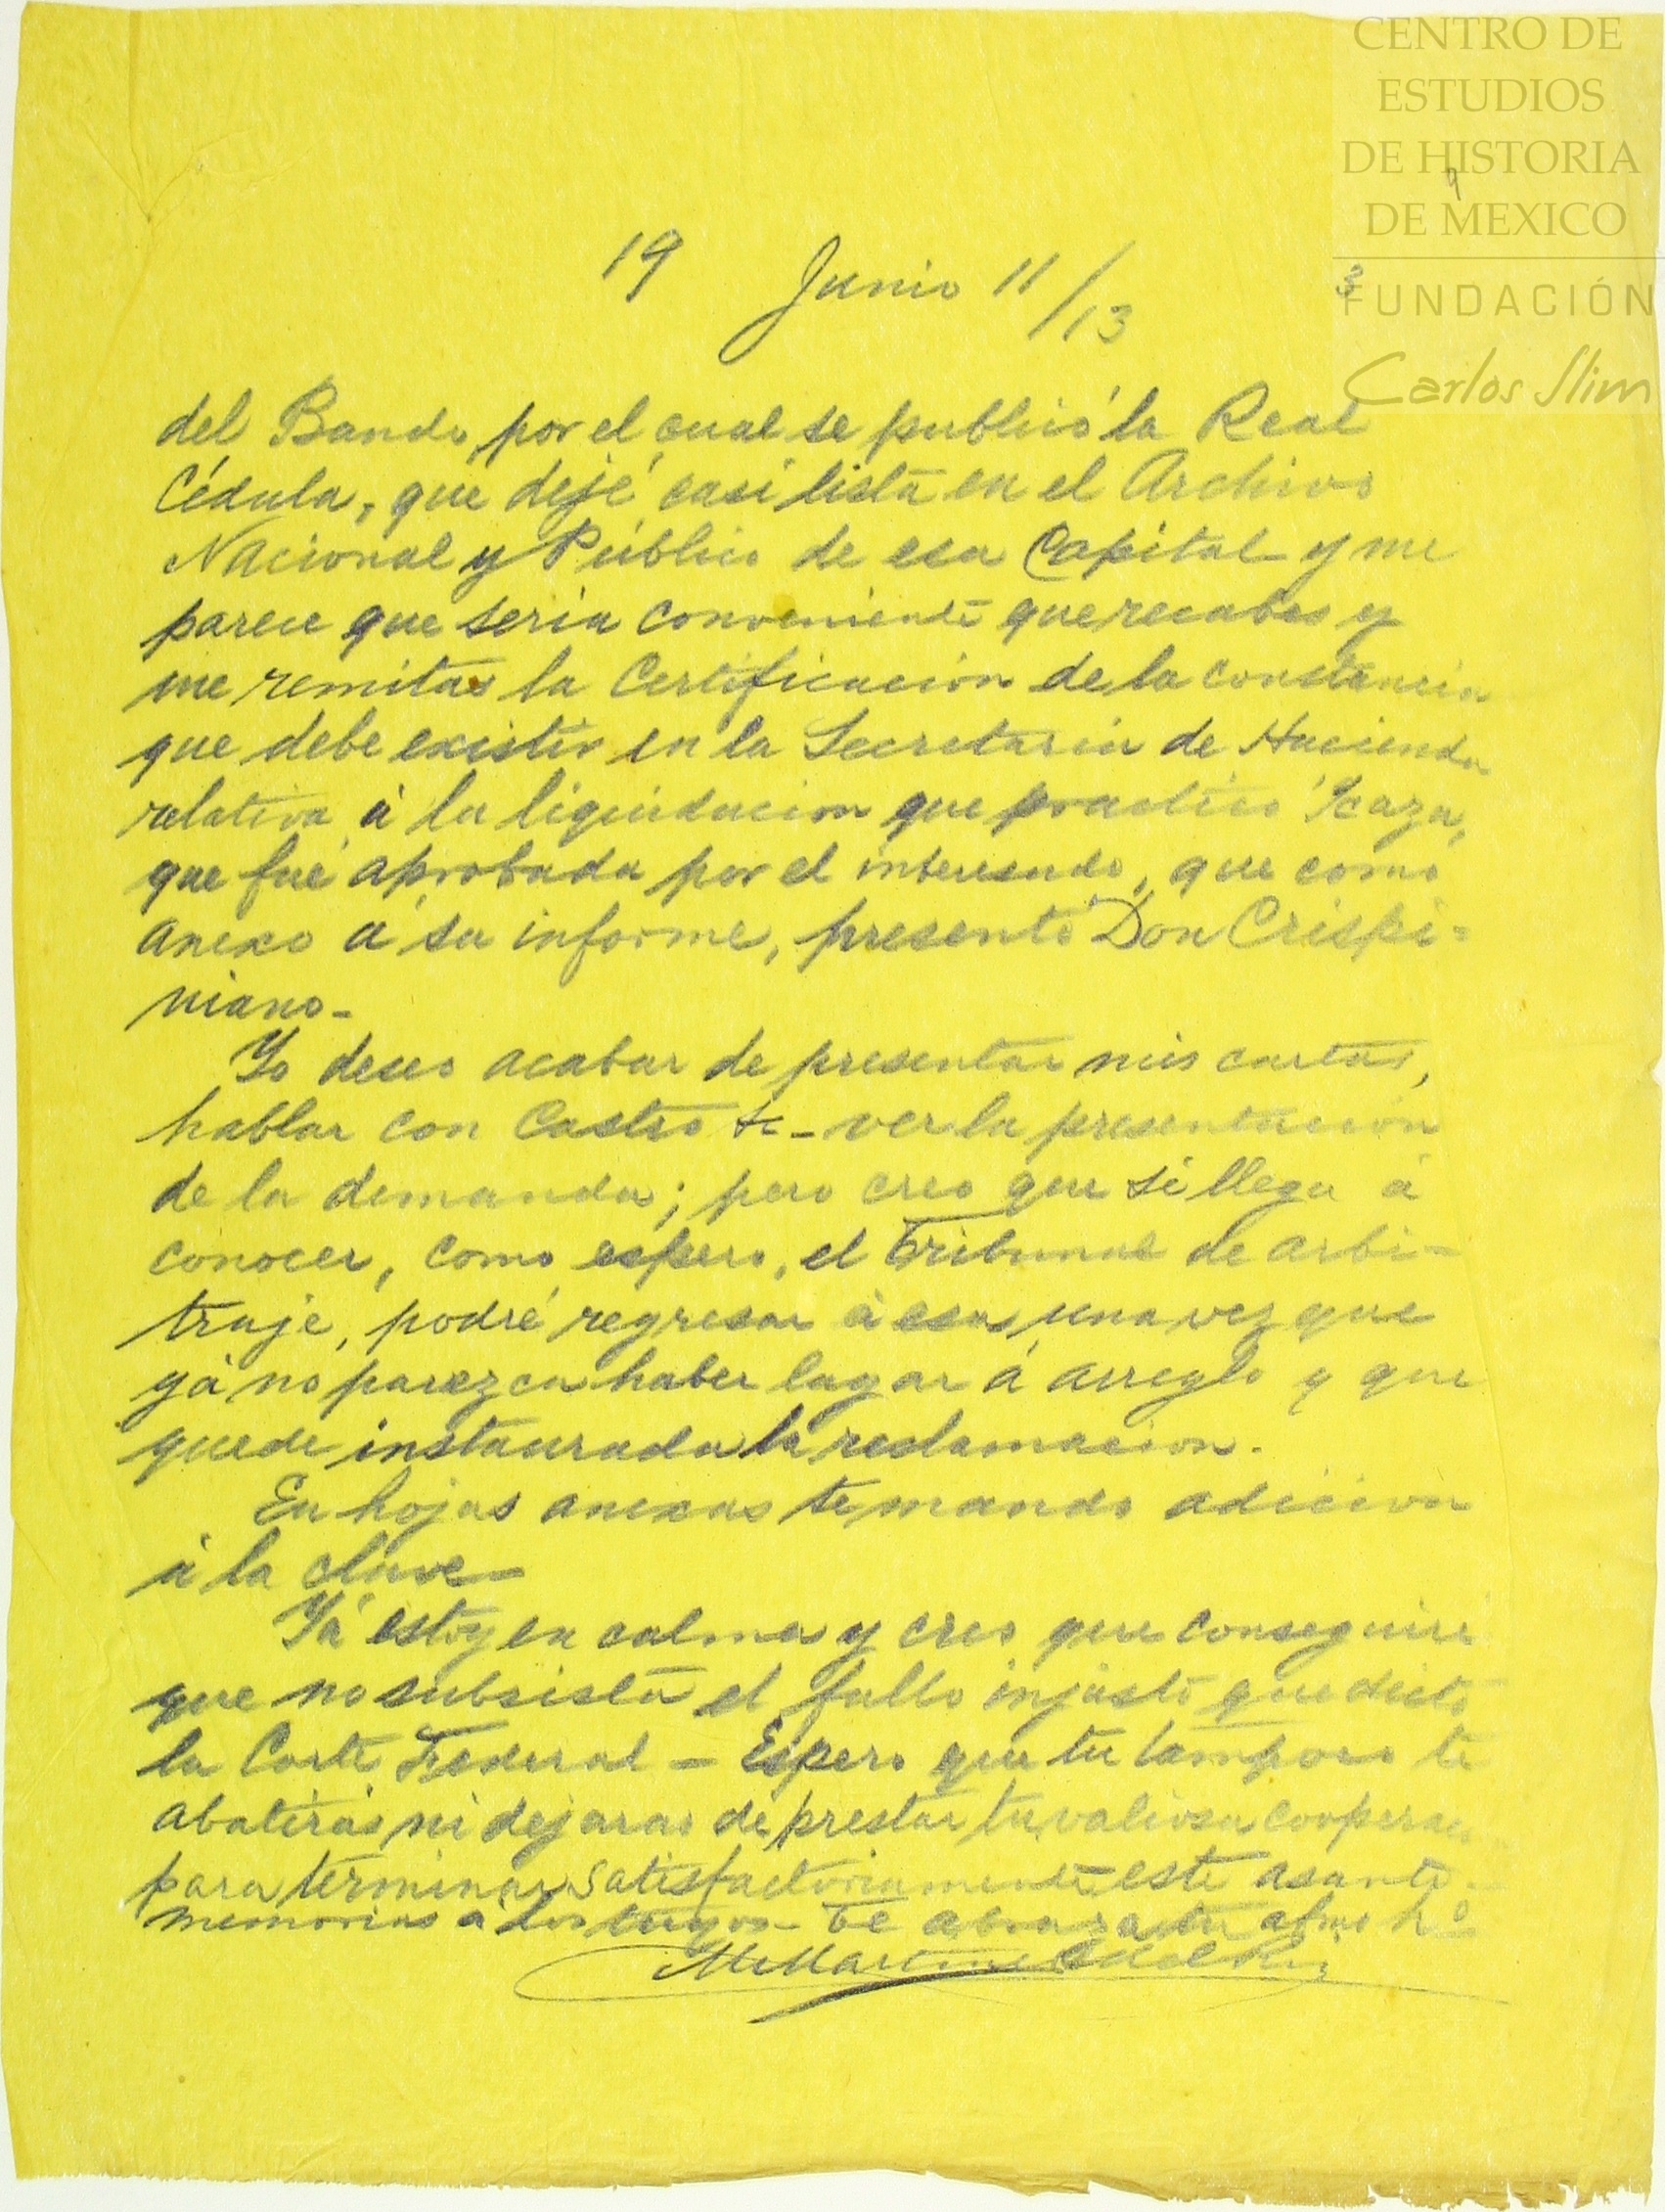 CENTRO DE
ESTUDIOS
DE HISTORIA
DE MEXICO
FUNDACIÓN
Carlos Slim
9
3
19 Junio 11/13
del Bando por el cual se publicó la Real
Cédula, que dejé casi lista en el Archivo
Nacional y Público de esa Capital y me
parece que seria conveniente que recabes y
me remitas la Certificacion de la constancia
que debe existir en la Secretaria de Hacienda
relativa á la liquidacion que practicó Icaza,
que fué aprobada por el interesado, que como
anexo á su informe, presentó Don Crispi-
niano-
Yo deseo acabar de presentar mis cartas,
hablar con Castro &- ver la presentacion
de la demanda; pero creo que si llega á
conocer, como espero, el Tribunal de arbi-
traje, podré regresar á esa, una vez que
yá no parezca haber lugar á arreglo y que
quede instaurada la reclamacion.
En hojas anexas te mando adicion
á la clave-
Yá estoy en calma y creo que conseguiré
que no subsista el fallo injusto que dictó
la Corte Federal - Espero que tu tampoco te
abatirás ni dejaras de prestar tu valiosa
para terminar satisfactoriamente este asunto.
memorias á los tuyos- Te abraza tu afmo hº